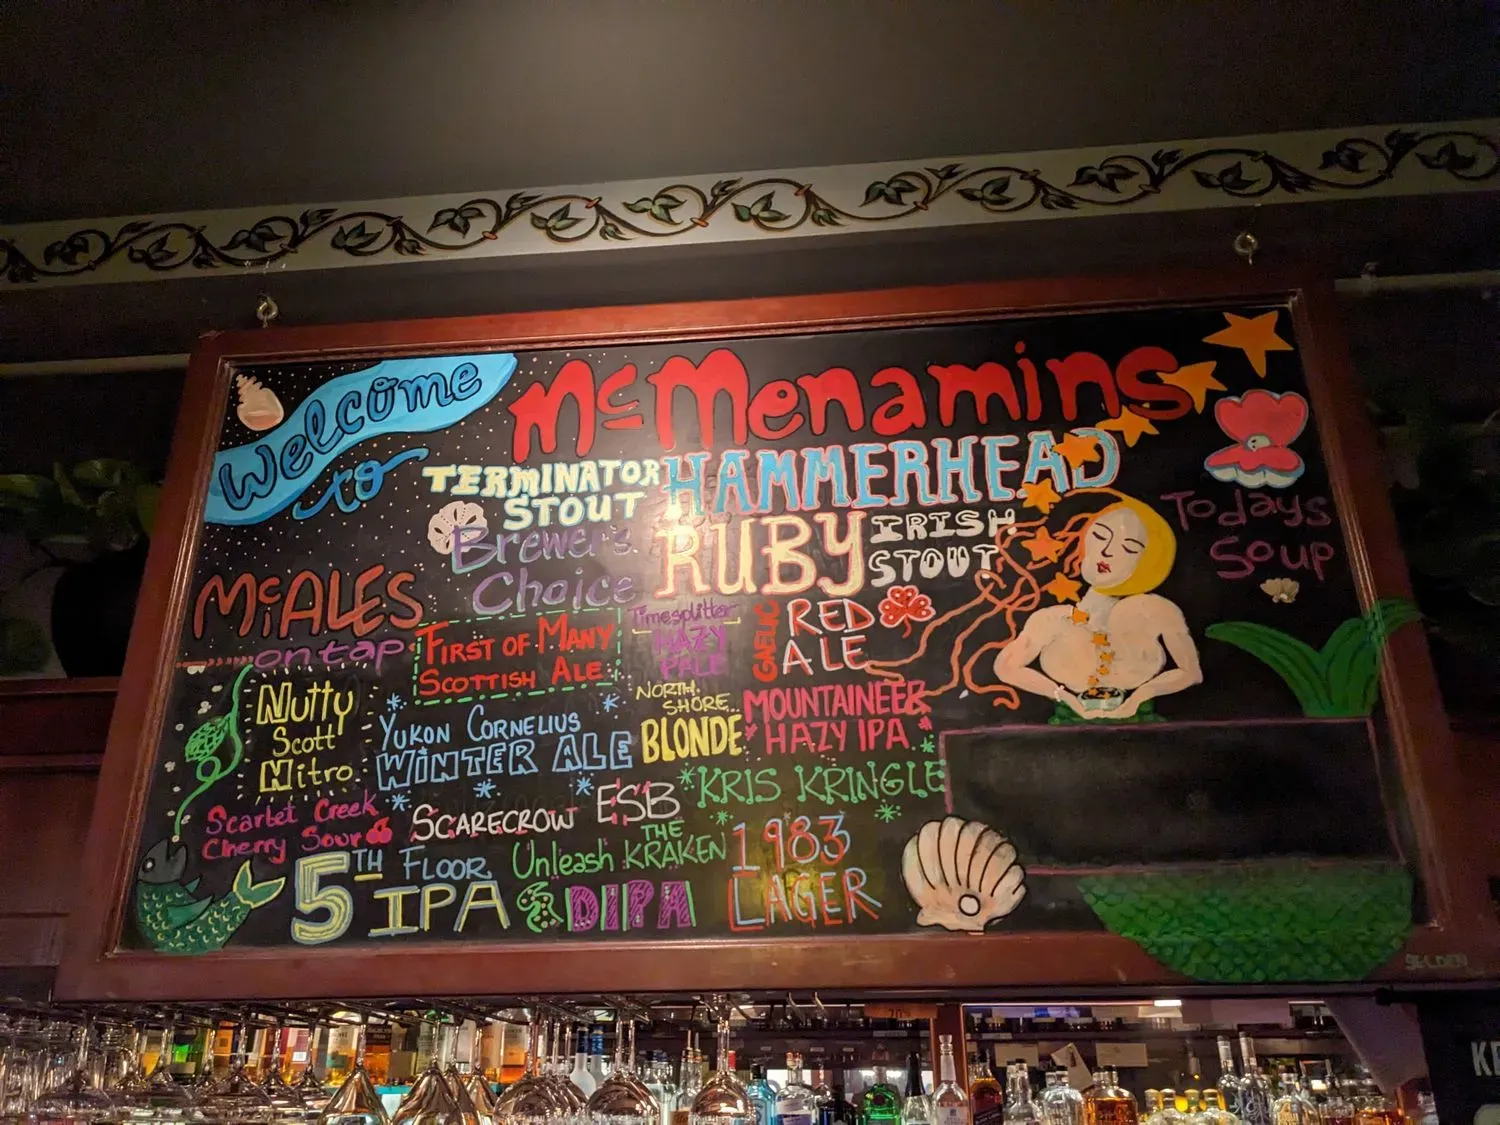 Welcome
to
McMenamins
TERMINATOR
STOUT
HAMMERHEAD
RUBY
IRISH
STOUT
Brewer's
Choice
Todays
Soup
McALES
on tap
FIRST OF MANY
SCOTTISH ALE
Timesplitter
HAZY
PALE
GAELIC
RED
ALE
Nutty
Scott
Nitro
YUKON CORNELIUS
WINTER ALE
NORTH
SHORE
BLONDE
MOUNTAINEER
HAZY IPA
Scarlet Creek
Cherry Sour
SCARECROW ESB
KRIS KRINGLE
5TH FLOOR
IPA
Unleash THE
KRAKEN
DIPA
1983
LAGER
SELDEN
KE